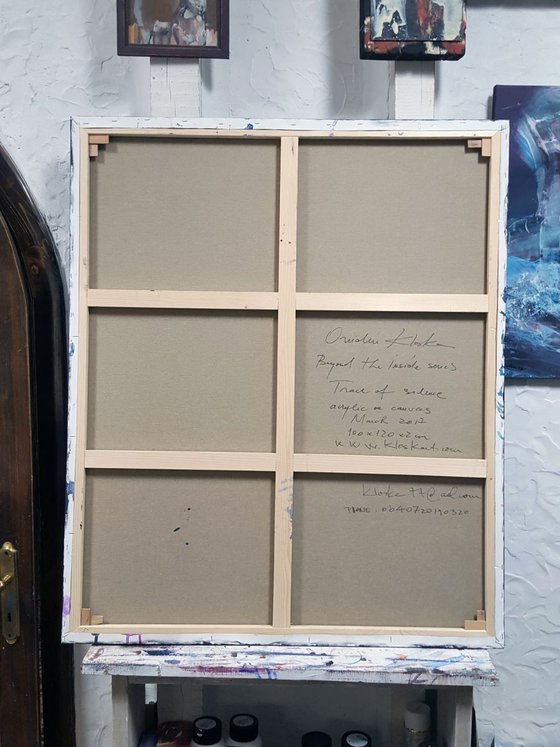 Ovidiu Kloska
Beyond the inside series
Trace of silence
acrylic on canvas
March 2017
100x120x2cm
www.kloskart.com
kloska77@aol.com
PHONE: 0040720190320